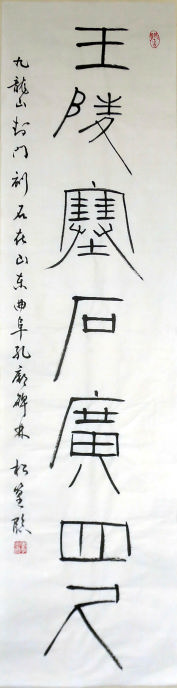 王陵塞石廣四尺
九龍山封門刻石在山東曲阜孔廟碑林